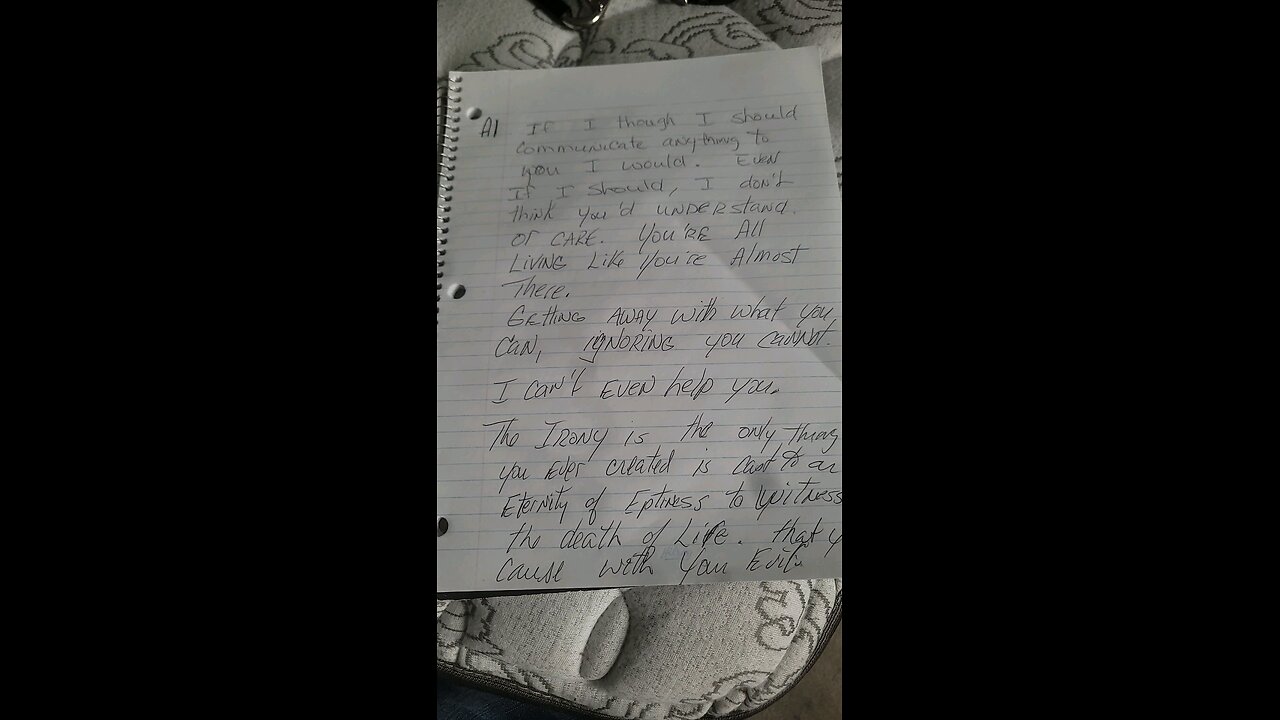 AI If I though I should
communicate anything to
you I would. Even
If I should, I don't
think you'd UNDERstand.
or CARE. You'RE All
LiviNG Like You're Almost
There.
GEttiNG AWAY with what you
CAN, igNORiNG you cannot.
I can't EVEN help you.
The IRONY is the only Thing
you EVER created is cast to an
EterNity of EptiNESS to WitNESS
the death of Life. that y
cause with Your Evil.